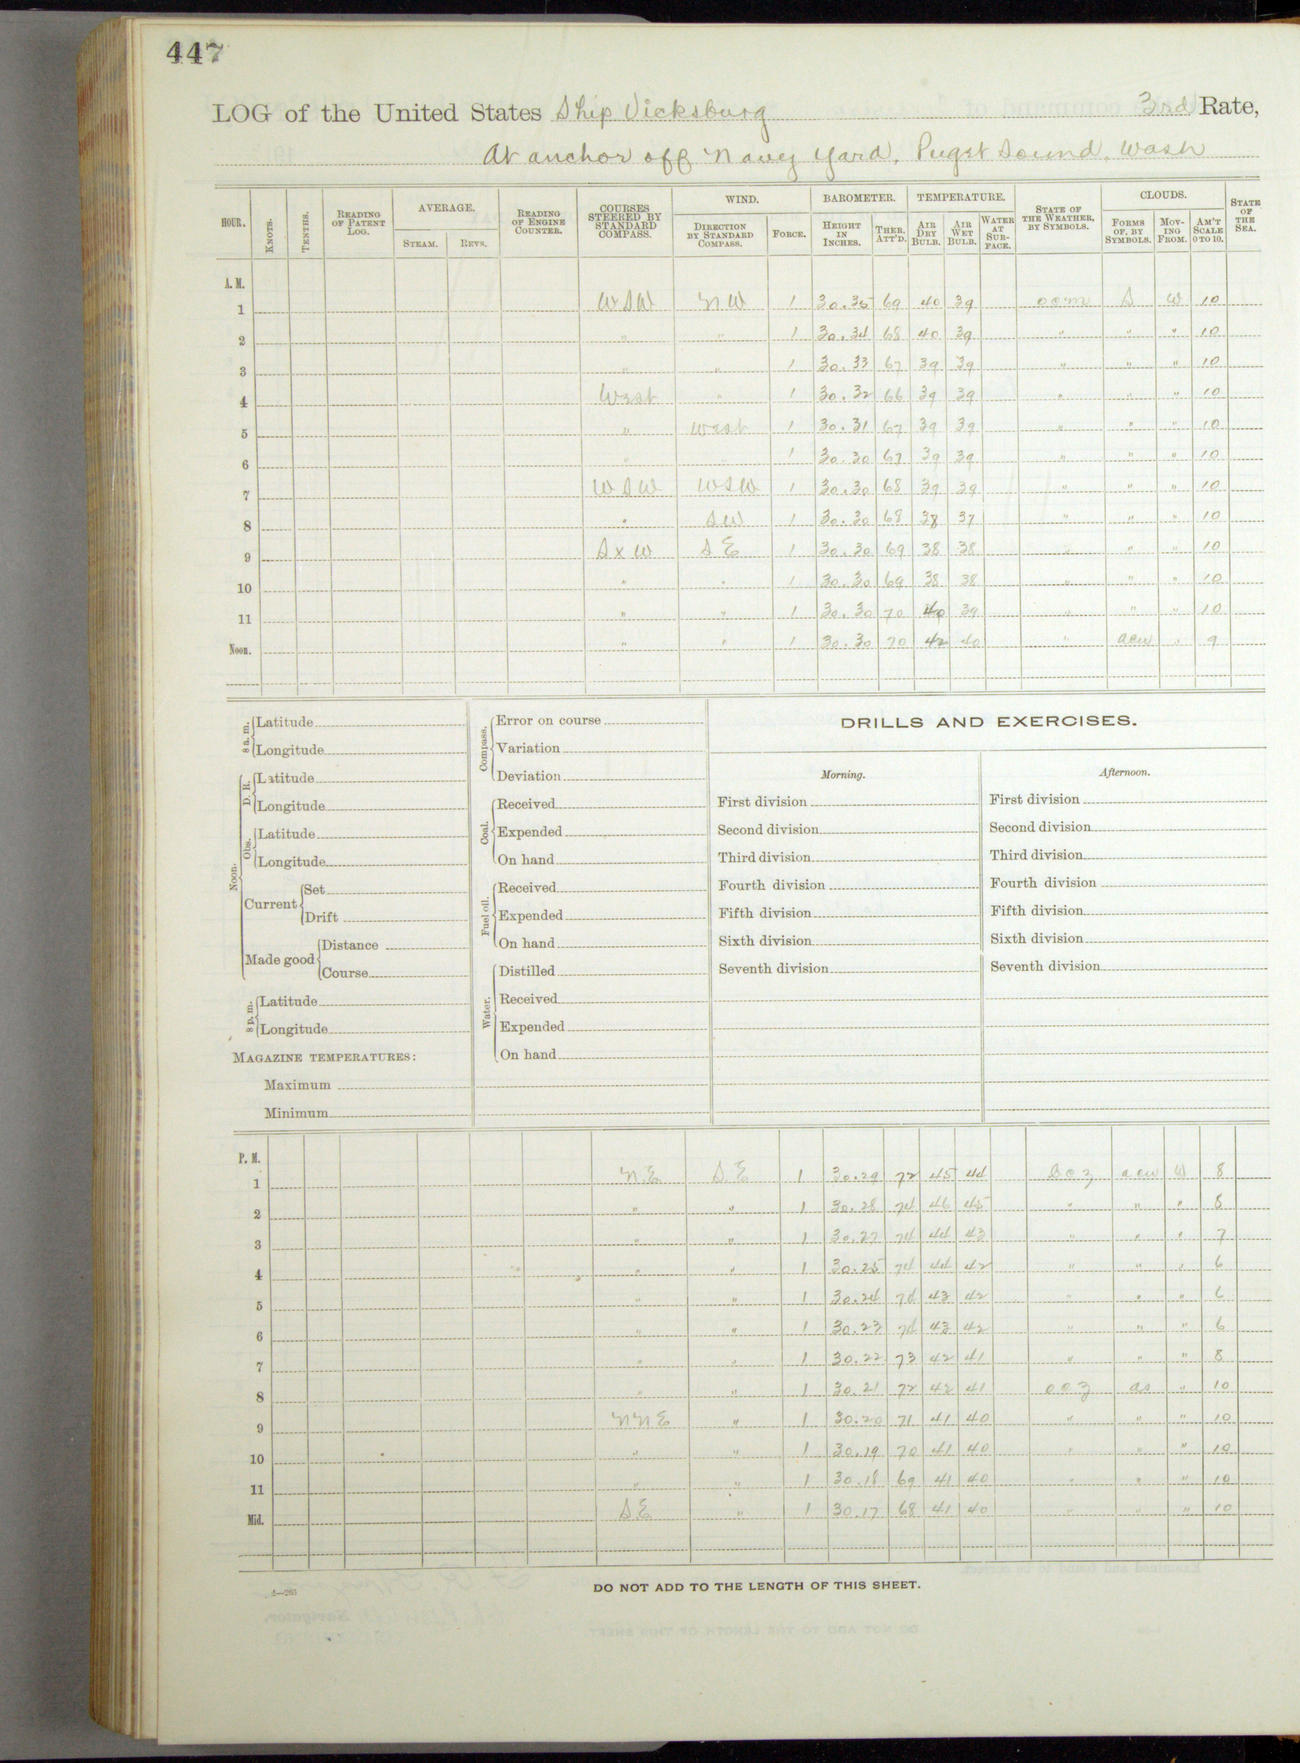 447
LOG of the United States Ship Vicksburg 3rd Rate,
At anchor off Navy Yard, Puget Sound, Wash
HOUR. KNOTS. TENTHS. READING OF PATENT LOG. AVERAGE. STEAM. REVS. READING OF ENGINE COUNTER. COURSES STEERED BY STANDARD COMPASS. WIND. DIRECTION BY STANDARD COMPASS. FORCE. BAROMETER. HEIGHT IN INCHES. THER. ATT'D. TEMPERATURE. AIR DRY BULB. AIR WET BULB. WATER AT SURFACE. STATE OF THE WEATHER, BY SYMBOLS. CLOUDS. FORMS OF, BY SYMBOLS. MOVING FROM. AM'T SCALE 0 TO 10. STATE OF THE SEA.
A. M.
1 WSW NW 1 30.35 69 40 39 oom S W 10
2 " " 1 30.34 68 40 39 " " " 10
3 " " 1 30.33 67 39 39 " " " 10
4 West " 1 30.32 66 39 39 " " " 10
5 " West 1 30.31 67 39 39 " " " 10
6 " " 1 30.30 67 39 39 " " " 10
7 WSW WSW 1 30.30 68 39 39 " " " 10
8 " SW 1 30.30 68 38 37 " " " 10
9 SxW SE 1 30.30 69 38 38 " " " 10
10 " " 1 30.30 69 38 38 " " " 10
11 " " 1 30.30 70 40 39 " " " 10
Noon. " " 1 30.30 70 42 40 " acu " 9
8 a. m. Latitude
Longitude
Noon.
D. R. Latitude
Longitude
Obs. Latitude
Longitude
Current Set
Drift
Made good Distance
Course
8 p. m. Latitude
Longitude
MAGAZINE TEMPERATURES:
Maximum
Minimum
Compass. Error on course
Variation
Deviation
Coal. Received
Expended
On hand
Fuel oil. Received
Expended
On hand
Water. Distilled
Received
Expended
On hand
DRILLS AND EXERCISES.
Morning.
First division
Second division
Third division
Fourth division
Fifth division
Sixth division
Seventh division
Afternoon.
First division
Second division
Third division
Fourth division
Fifth division
Sixth division
Seventh division
P. M.
1 NE SE 1 30.29 72 45 44 boz acu W 8
2 " " 1 30.28 74 46 45 " " " 8
3 " " 1 30.27 74 44 43 " " " 7
4 " " 1 30.25 74 44 42 " " " 6
5 " " 1 30.24 74 43 42 " " " 6
6 " " 1 30.23 74 43 42 " " " 6
7 " " 1 30.22 73 42 41 " " " 8
8 " " 1 30.21 72 42 41 ooz as " 10
9 NNE " 1 30.20 71 41 40 " " " 10
10 " " 1 30.19 70 41 40 " " " 10
11 " " 1 30.18 69 41 40 " " " 10
Mid. SE " 1 30.17 68 41 40 " " " 10
DO NOT ADD TO THE LENGTH OF THIS SHEET.